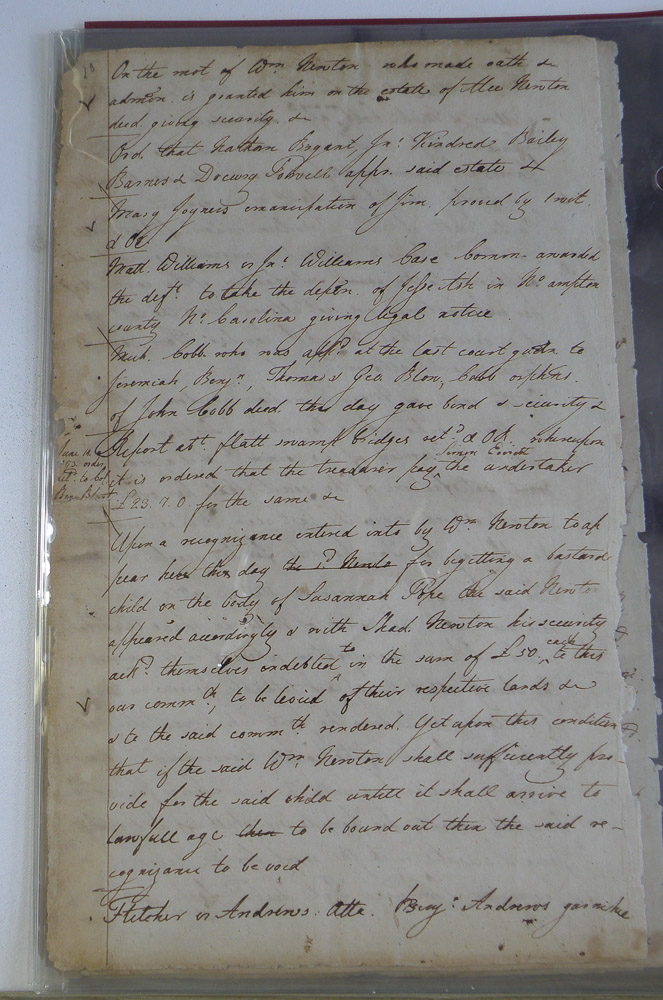 On the mot of Wm Newton who made oath &
admon. is granted him on the estate of Newton
decd. giving security &
Ord. that Nathan Bryant, Jnr Kindred, Bailey
Barnes & Drewry appr. said estate &
Mary Joyners emancipation of Jim. proved by 1 wit.
& OR.
Matt. Williams vs Jnr Williams Case Comon. awarded
the deft. to take the depon. of Jesse Ash in No. ampton
county No. Carolina giving legal notice.
Mich. Cobb who was appd. at the last court gudn to
Jeremiah, Benjn, Thomas & Geo. Blow, Cobb orphns.
of John Cobb decd. this day gave bond & security &
June 14
03. order
to be
Report abt. flatt swamp bridges retd. & OR. whereupon
it is ordered that the treasurer pay the undertaker
£23.7.0 for the same &
Upon a recognizance entered into by Wm Newton to ap
pear here this day the sd Newto for begetting a bastard
child on the body of Susannah Pope the said Newton
appeared accordingly & with Shad. Newton his security
ackd. themselves indebted to in the sum of £50. each to this
our commth, to be levied of their respective lands &c
& to the said commth rendered. Yet upon this condition
that if the said Wm Newton shall sufficiently pro-
vide for the said child untill it shall arrive to
lawfull age then to be bound out then the said re-
cognizance to be void
Fletcher vs Andrews. Atta. Benjn Andrews garnishee